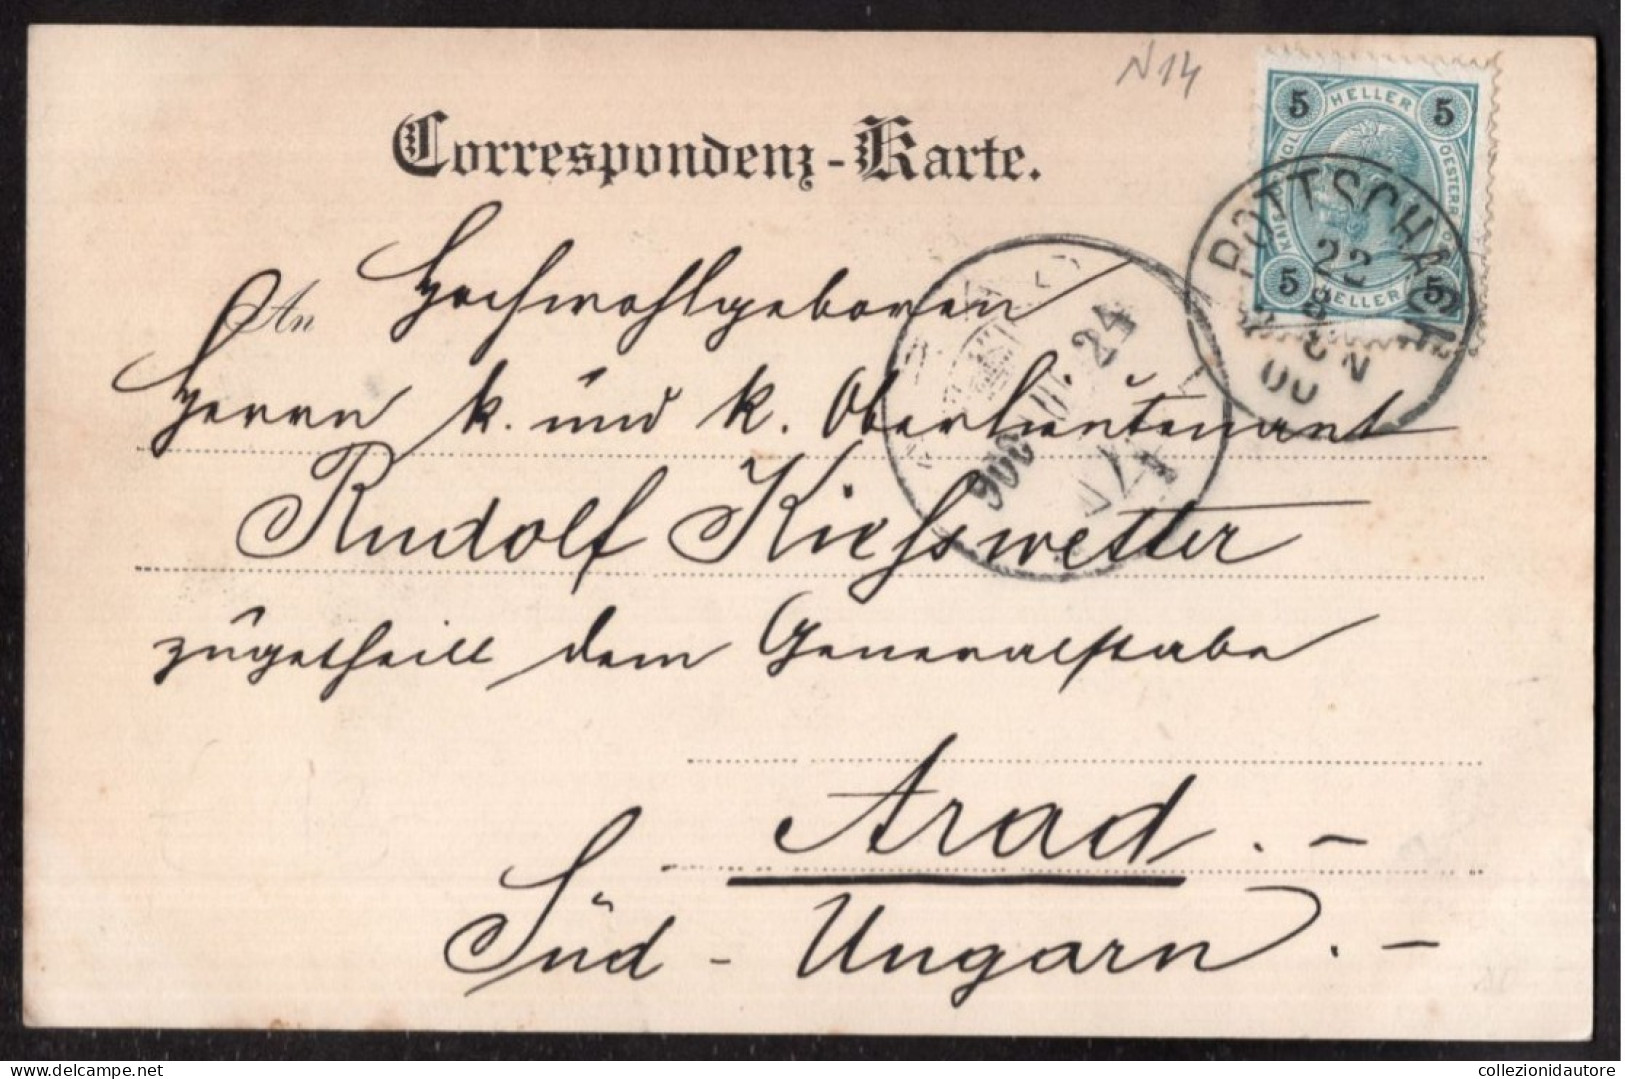 N 14
Correspondenz-Karte.
5 HELLER 5
5 HELLER 5
POTTSCHACH
22
8
00
900 24
An Hochwohlgeboren
Herrn k. und k. Oberlieutenant
Rudolf Kießwetter
zugetheilt dem Generalstabe
Arad . –
Süd - Ungarn . –
collezionidautore